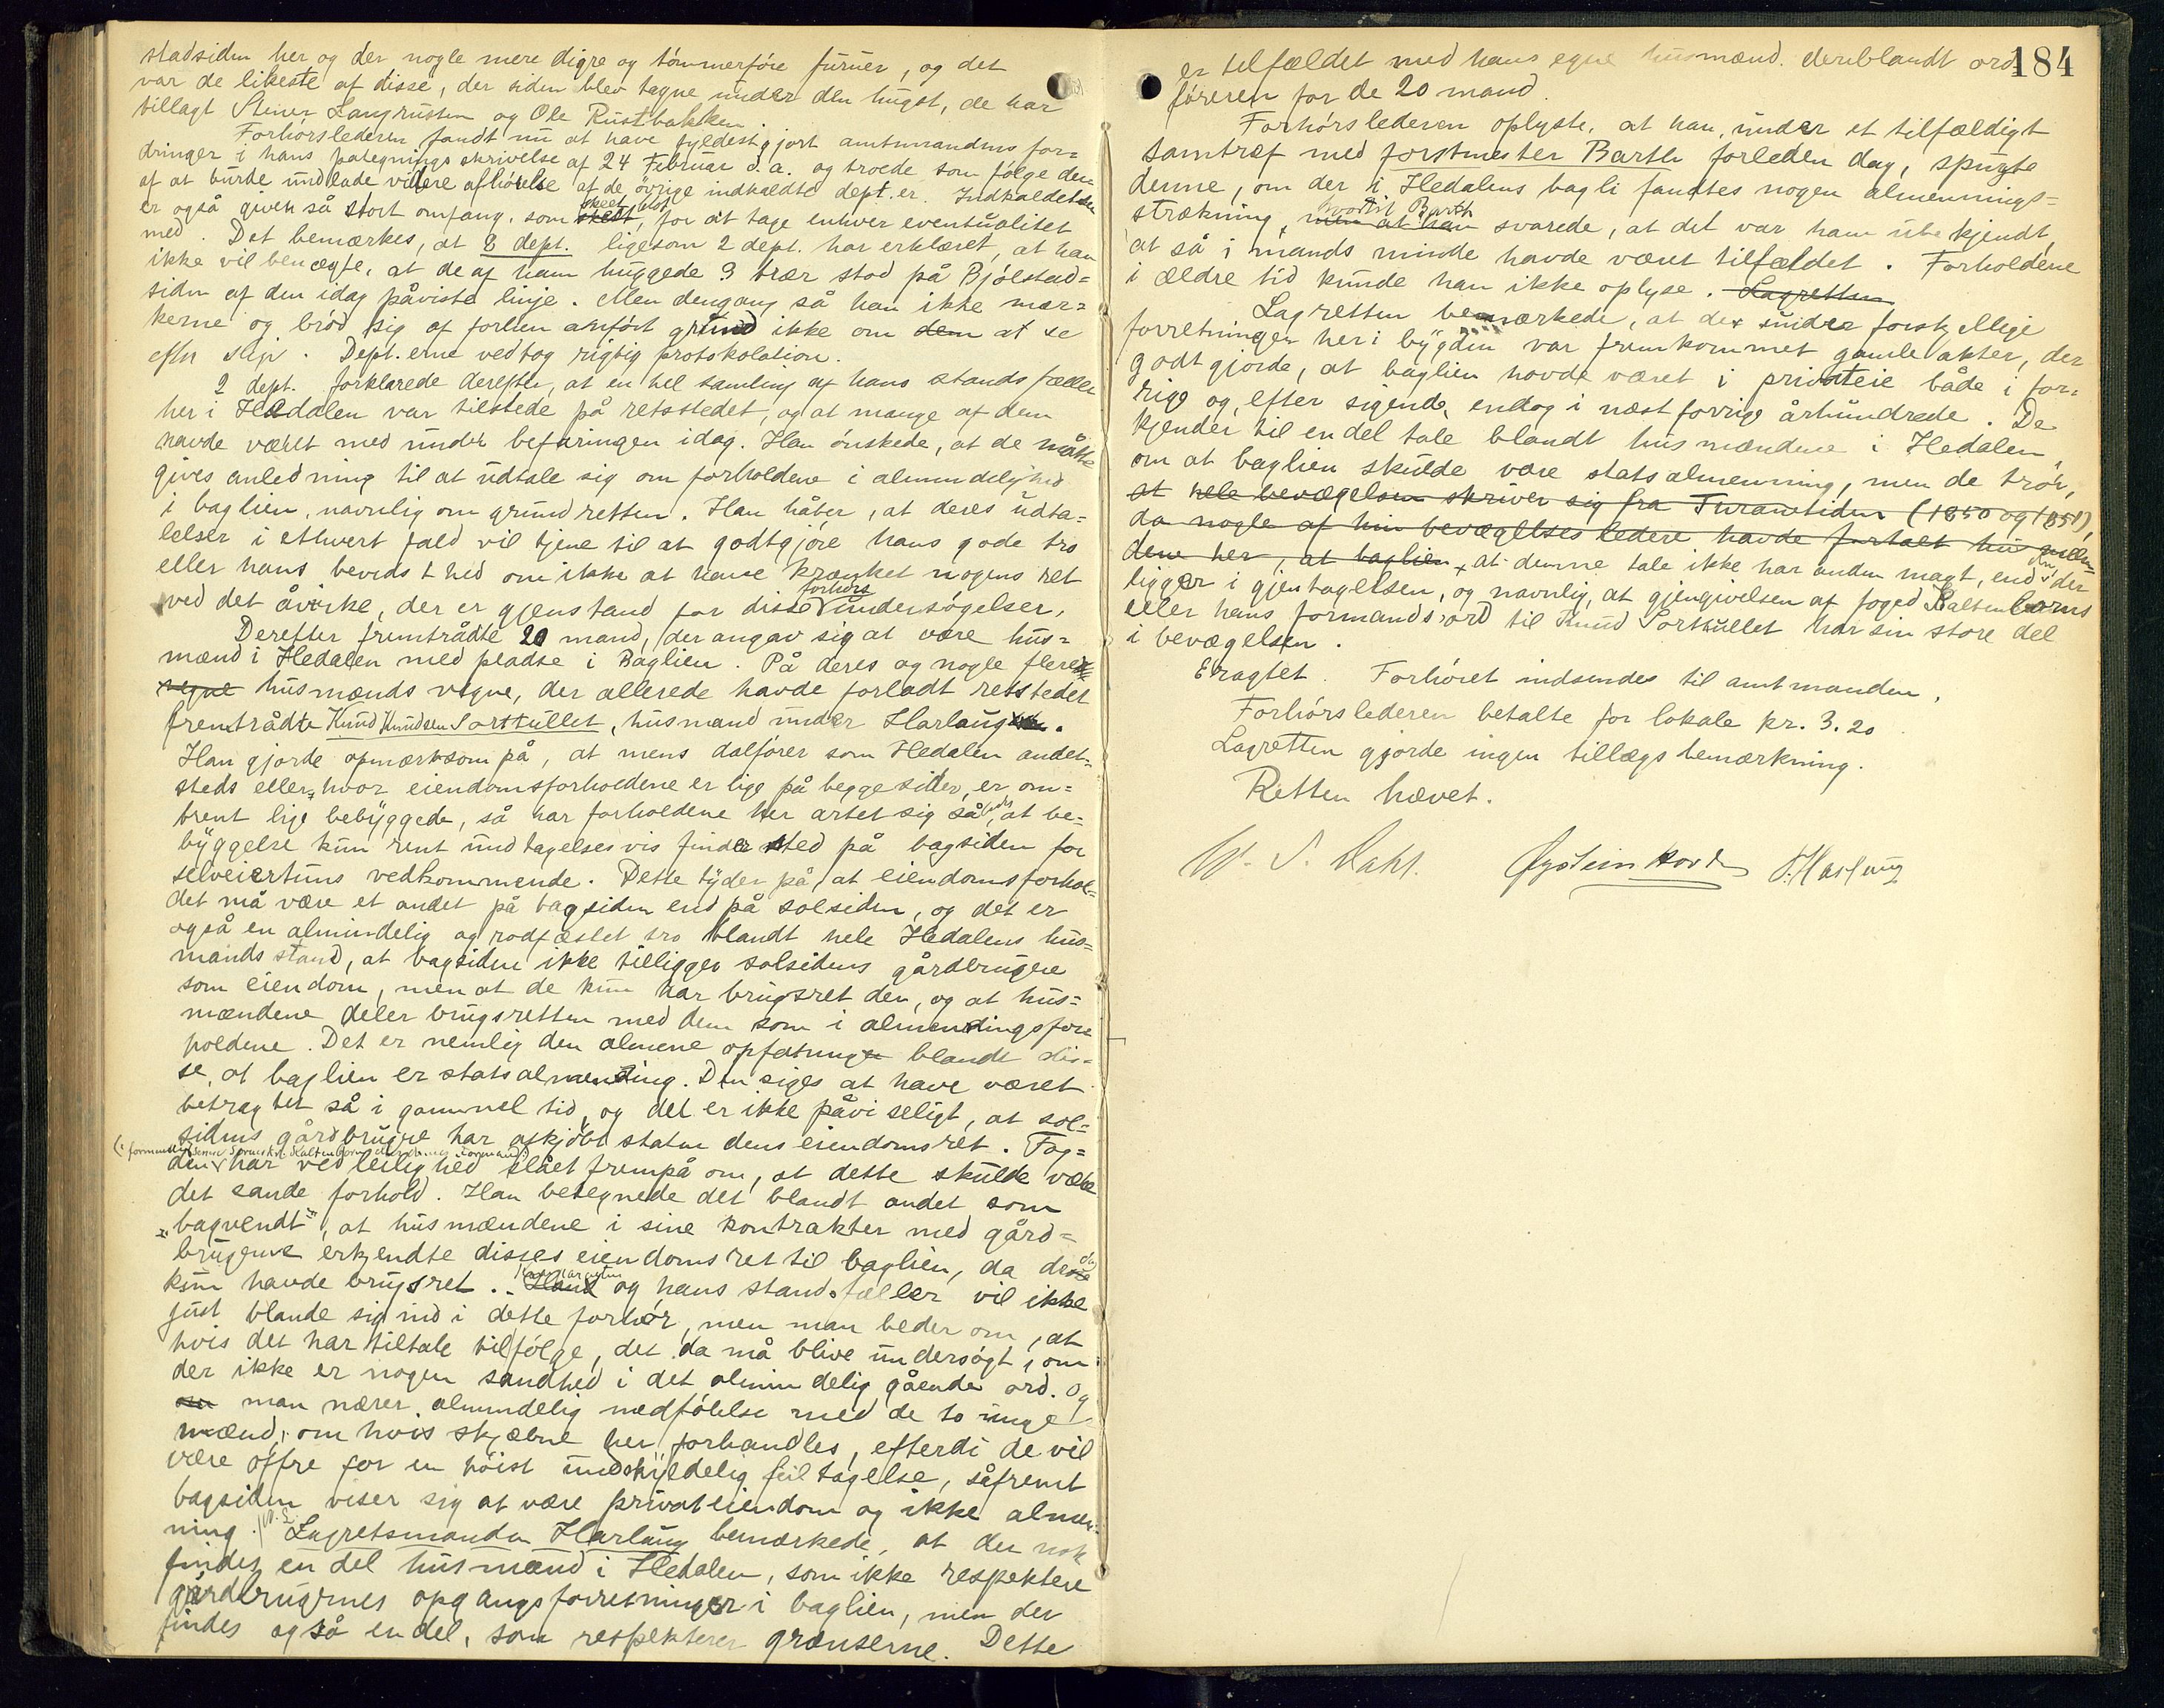 stadsiden her og der nogle mere digre og tömmerföre furuer, og det
var de likeste af disse, der siden blev tagne under den hugst, de har
tillagt Steiner Langrusten og Ole Rustbakken.
Forhörslederen fandt nu at have fyldestgjort amtmandens for=
dringer i hans paategningsskrivelse af 24 Februar d.a. og troede som fölge der=
af at burde undlade videre afhörelse af de övrige indkaldte dept.er. Indkaldelsen
er også given så stort omfang, som skeet blot for at tage enhver eventualitet
med. Det bemærkes, at 8 dept. ligesom 2 dept. har erklæret, at han
ikke vil benægte, at de af ham huggede 3 trær stod på Bjölstad=
siden af den idag påviste linje. Men dengang så han ikke mær=
kerne og bröd sig af forhen anfört grund ikke om dem at se
efter stip. Dept.erne vedtog rigtig protokolation.
2 dept. forklarede derefter, at en hel samling af hans standsfæller
her i Hedalen var tilstede på retsstedet, og at mange af dem
havde været med under befaringen idag. Han önskede, at de måtte
gives anledning til at udtale sig om forholdene i almindelighed
i baglien, navnlig om grundretten. Han håber, at deres udta=
lelser i ethvert fald vil tjene til at godtgjöre hans gode tro
eller hans bevidsthed om ikke at have krænket nogens ret
ved det åvirke, der er gjenstand for disse forhörs undersögelser.
Derefter fremtrådte 20 mand, der angav sig at være hus=
mænd i Hedalen med pladse i Baglien. På deres og nogle flere
vegne husmænds vegne, der allerede havde forladt retsstedet
fremtrådte Knud Knudsen Sorttullet, husmand under Harlaug.
Han gjorde opmærksom på, at mens dalförer som Hedalen andet=
steds eller, hvor eiendomsforholdene er lige på begge sider, er om=
trent lige bebyggede, så har forholdene her artet sig så, at be=
byggelse kun rent undtagelsesvis finder sted på bagsiden for
selveiertuns vedkommende. Dette tyder på, at eiendomsforhol=
det må være et andet på bagsiden end på solsiden, og det er
også en almindelig og rodfæstet tro blandt hele Hedalens hus=
mandsstand, at bagsiden ikke tilligger solsidens gårdbrugere
som eiendom, men at de kun har brugsret der, og at hus=
mændene deler brugsretten med dem som i almendingsfor
holdene. Det er nemlig den almene opfatning blandt dis=
se, at baglien er statsalmending. Den siges at have været
betragtet så i gammel tid, og det er ikke påviseligt, at sol=
sidens gårdbrugere har afkjöbt staten dens eiendomsret. Fog=
den har ved leilighed slået frempå om, at dette skulde være
det sande forhold. Han betegnede det blandt andet som
"bagvendt", at husmændene i sine kontrakter med gård=
brugerne erkjendte disses eiendomsret til baglien, da de
kun havde brugsret. og hans standsfæller vil ikke
just blande sig ind i dette forhör, men man beder om, at
hvis det har tiltale tilfölge, det da må blive undersögt, om
der ikke er nogen sandhed i det almindelig gående ord. Og
man nærer almindelig medfölelse med de to unge
mænd, om hvis skjæbne her forhandles, efterdi de vil
være offre for en höist undskyldelig feiltagelse, såfremt
bagsiden viser sig at være privateiendom og ikke almen=
ning. Lagretsmanden Harlaug bemærkede, at der nok
findes en del husmænd i Hedalen, som ikke respektere
gårdbrugernes opgangsforretninger i baglien, men der
findes også en del, som respekterer grænserne. Dette
184
er tilfældet med hans egne husmænd. deriblandt ord=
föreren for de 20 mand.
Forhörslederen oplyste, at han, under et tilfældigt
samtræf med forstmester Barth forleden dag, spurgte
denne, om der i Hedalens bagli fandtes nogen almennings=
strækning, hvortil Barth svarede, at det var ham ubekjendt
at så i mands minde havde været tilfældet. Forholdene
i ældre tid kunde han ikke oplyse. Lagretten
Lagretten bemærkede, at der under forskjellige
forretninger her i bygden var fremkommet gamle akter, der
godtgjorde, at baglien havde været i privateie både i for=
rige og, efter sigende, endog i næst forrige århundrede. De
kjender til en del tale blandt husmændene i Hedalen
om at baglien skulde være statsalmenning, men de tror,
at hele bevægelsen skriver sig fra Tranetiden (1850 og 1851),
da nogle af hin bevægelses ledere havde fortalt hus mæn=
dene her, at baglien, at denne tale ikke har anden magt, end den, der
ligger i gjentagelsen, og navnlig, at gjengivelsen af foged Kaltenborns
eller hans formands ord til Knud Sorttullet har sin store del
i bevægelsen.
Eragtet. Forhöret indsendes til amtmanden.
Forhörslederen betalte for lokale kr. 3.20
Lagretten gjorde ingen tillægsbemærkning.
Retten hævet.
Øystein Hovde